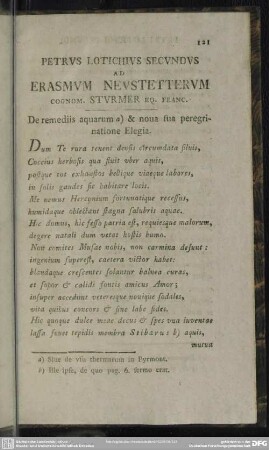 121
PETRVS LOTICHIVS SECVNDVS
AD
ERASMVM NEVSTETTERVM
COGNOM. STVRMER EQ. FRANC.
De remediis aquarum a) & noua sua peregri-
natione Elegia.
Dum Te rura tenent densis circumdata siluis,
Coccius herbosis qua fluit vber aquis,
postque tot exhaustos bellique viaeque labores,
in solis gaudes sic habitare locis.
Me nemus Hercynium fortunatique recessus,
humidaque oblectant stagna salubris aquae.
Hic domus, hic fesso patria est, requiesque malorum,
degere natali dum vetat hostis humo.
Non comites Musae nobis, non carmina desunt:
ingenium superest, caetera victor habet:
blandaque crescentes solantur balnea curas,
et sopor & calidi fontis amicus Amor;
insuper accedunt veteresque nouique sodales,
vita quibus concors & sine labe fides.
Hic quoque dulce meae decus & spes vna iuuentae
lassa fouet tepidis membra Stibarus b) aquis,
mutua
a) Non de vsu thermarum in Pyrmont.
b) Ille ipse, de quo pag. 6. sermo erat.